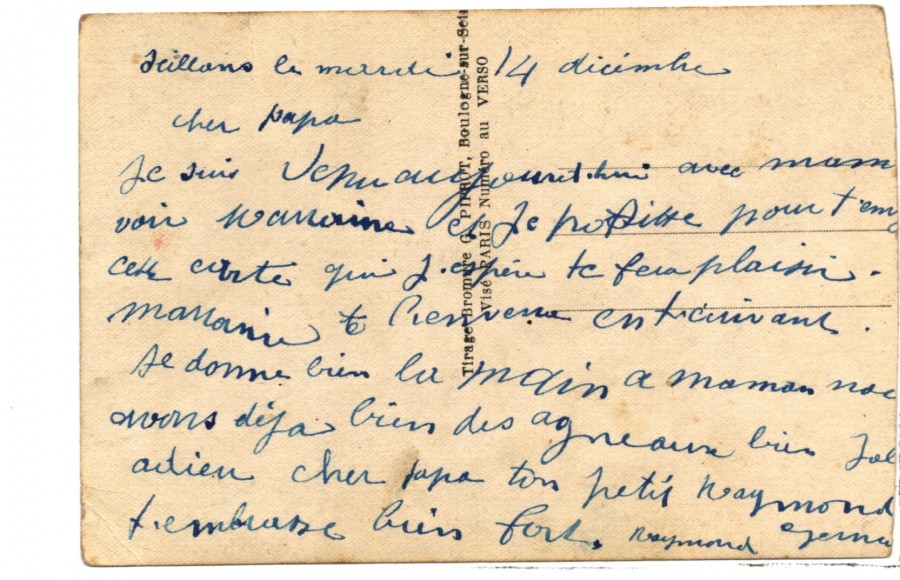 le mercredi 14 décembre
cher papa
Je suis Venu aujourd.hui avec mam
voir Marraine et Je profitte pour t'en
cette carte qui J.espère te fera plaisir.
Marraine te en t'écrivant.
Je donne bien la main a maman nou
avons déja bien des agneaux bien Jol
adieu cher papa ton petit Raymond
t.embrasse bien fort. Raymond
Tirage Bromure G. PIPROT, Boulogne-sur-Sei
Visé PARIS Numéro au VERSO